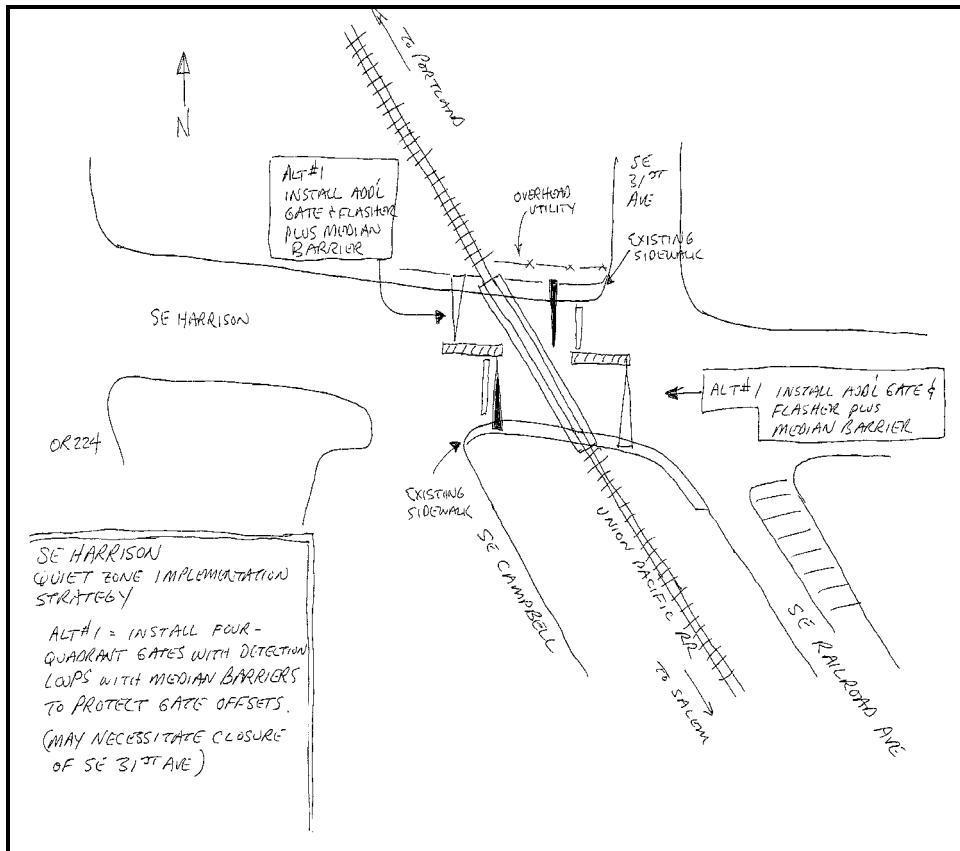 TO PORTLAND
N
ALT#1
INSTALL ADD'L
GATE & FLASHER
PLUS MEDIAN
BARRIER
OVERHEAD
UTILITY
SE
31ST
AVE
EXISTING
SIDEWALK
SE HARRISON
ALT#1 INSTALL ADD'L GATE &
FLASHER PLUS
MEDIAN BARRIER
OR224
EXISTING
SIDEWALK
SE CAMPBELL
UNION PACIFIC RR
TO SALEM
SE RAILROAD AVE
SE HARRISON
QUIET ZONE IMPLEMENTATION
STRATEGY
ALT#1 = INSTALL FOUR-
QUADRANT GATES WITH DETECTION
LOOPS WITH MEDIAN BARRIERS
TO PROTECT GATE OFFSETS.
(MAY NECESSITATE CLOSURE
OF SE 31ST AVE)